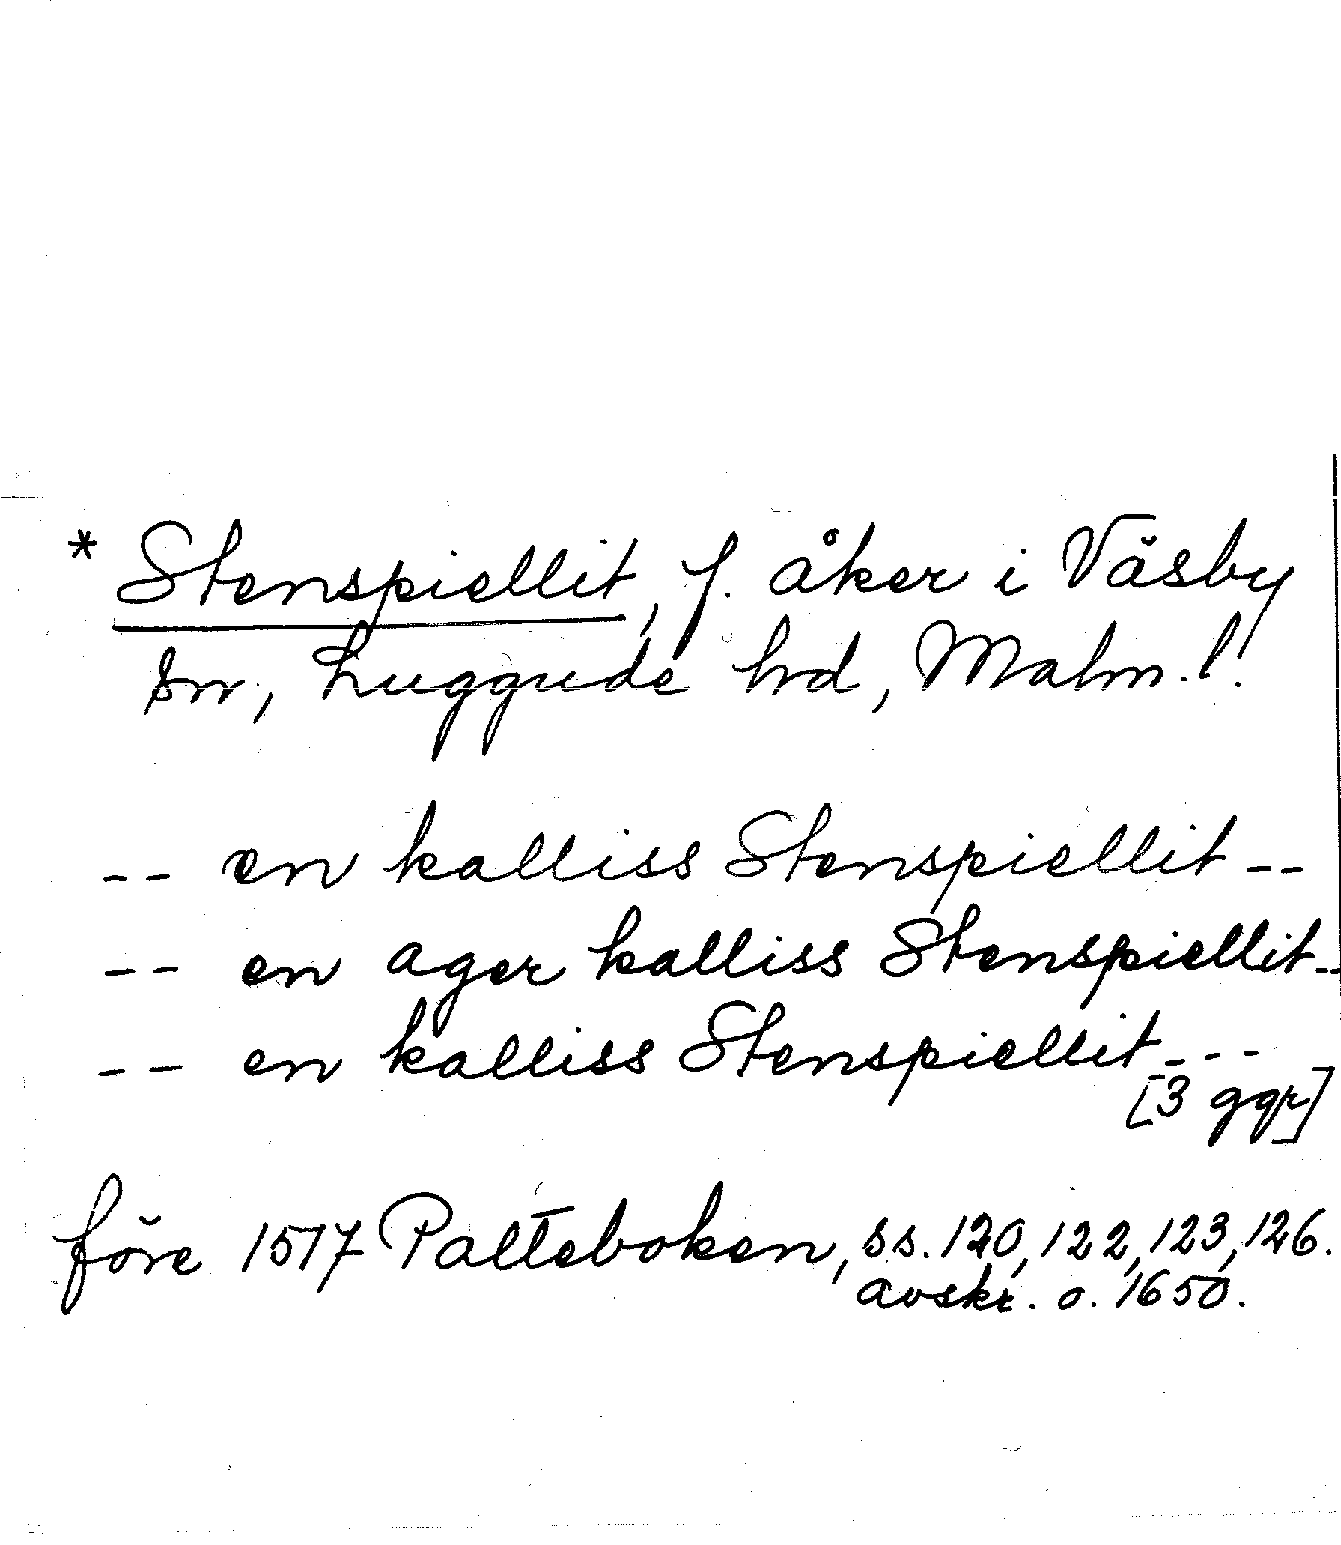 * Stenspiellit, f. åker i Väsby
sn, Luggude hd, Malm. l.
-- en kalliss Stenspiellit --
-- en ager kalliss Stenspiellit --
-- en kalliss Stenspiellit - - -
[3 ggr]
före 1517 Palteboken, ss. 120, 122, 123, 126.
avskr. o. 1650.